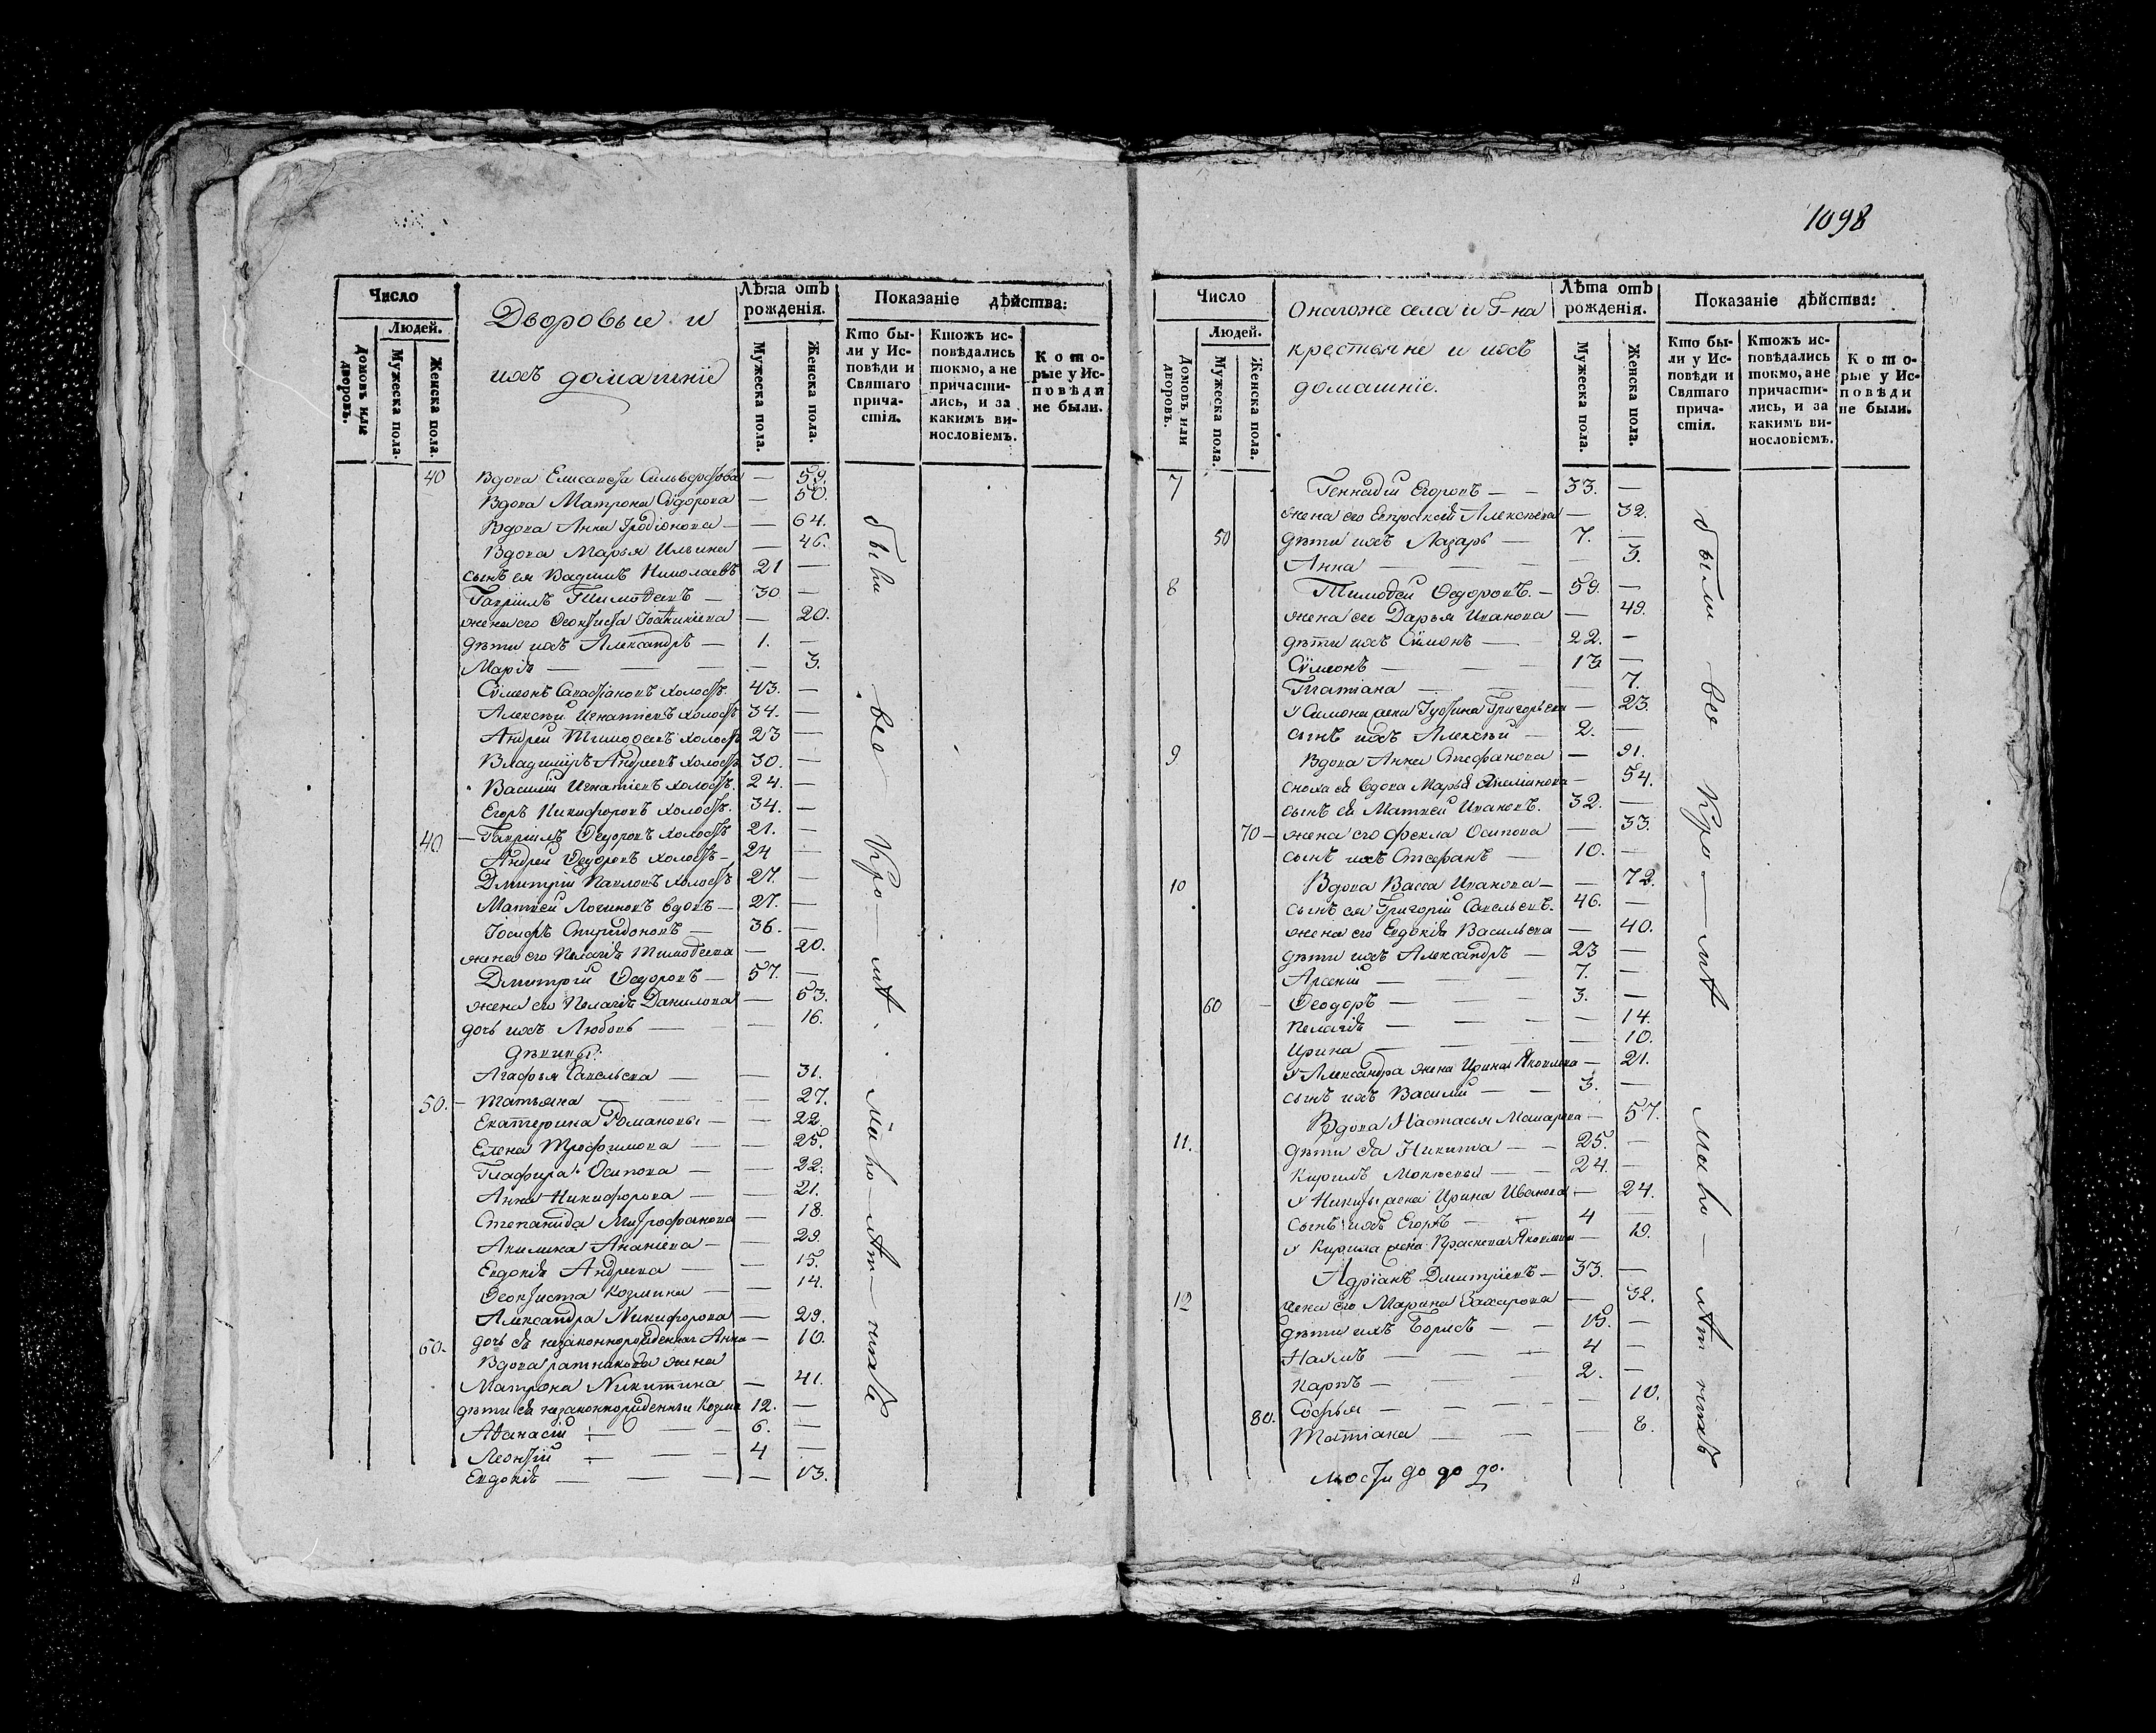 1098
Число
Людей.
Домовъ или дворовъ.
Мужеска пола.
Женска пола.
Дворовые и
ихъ домашніе
Лѣта отъ рожденія.
Мужеска пола.
Женска пола.
Показаніе дѣйства:
Кто были у Исповѣди и Святаго причастія.
Ктожъ исповѣдались токмо, а не причастились, и за какимъ винословіемъ.
Которые у Исповѣди не были.
40 Вдова Елисавета — 59.
Вдова Матрона Сидорова — 50.
Вдова Анна Иродіонова — 64.
Вдова Марья Ильина — 46.
сынъ ея Вадимъ Николаевъ 21 —
Гавріилъ Тимоѳеевъ — 30 —
жена его Ѳеоктиста Іоанникіева — 20.
дѣти ихъ Александръ — 1. —
Марія — 3.
Сѵмеонъ Севастіановъ холостъ. 43. —
Алексѣй Игнатіевъ холостъ 34. —
Андрей Тимоѳеевъ холостъ 23 —
Владиміръ Андреевъ холостъ 30. —
Василій Игнатіевъ холостъ. 24. —
Егоръ Никифоровъ холостъ. 34. —
40. — Гавріилъ Ѳедоровъ холостъ 21. —
Андрей Ѳедоровъ холостъ — 24 —
Дмитрій Павловъ холостъ 27. —
Матвей Логиновъ вдовъ — 27. —
Іосифъ Спиридоновъ — 36. —
жена его Пелагія Тимоѳеева — 20.
Дмитрій Ѳедоровъ — 57. —
жена его Пелагія Данилова — 53.
дочь ихъ Любовь — 16.
Дѣвицы:
Агафья Савельева — 31.
50. — Татьяна — 27.
Екатерина Романовы — 22.
Елена Трофимова — 25.
Глафира Осипова — 22.
Анна Никифорова — 21.
Степанида Митрофанова — 18.
Акилина Ананіева — 29.
Евдокія Андреева — 15.
Ѳеоктиста Козмина — 14.
Александра Никифорова — 29.
60. дочь ея незаконнорожденная Анна — 10.
Вдова ратникова жена
Матрона Никитина — 41.
дѣти ея незаконнорожденные Козма 12. —
Аѳанасій — 6. —
Леонтій — 4 —
Евдокія — 13.
были
все
Кро — мѣ
мало — лѣт — нихъ
Число
Людей.
Домовъ или дворовъ.
Мужеска пола.
Женска пола.
Онагоже села и Г-на
крестьяне и ихъ
домашніе.
Лѣта отъ рожденія.
Мужеска пола.
Женска пола.
Показаніе дѣйства:
Кто были у Исповѣди и Святаго причастія.
Ктожъ исповѣдались токмо, а не причастились, и за какимъ винословіемъ.
Которые у Исповѣди не были.
7 Геннадій Егоровъ — 33. —
жена его Евпраксія Алексѣева — 32.
50 дѣти ихъ Лазарь — 7. —
Анна — 3.
8 Тимоѳей Ѳедоровъ. — 59. —
жена его Дарья Иванова — 49.
дѣти ихъ Симонъ — 22. —
Сѵмеонъ — 13 —
Татіана — 7.
у Симона жена Іустина Григорьева — 23.
сынъ ихъ Алексѣй — 2. —
9 Вдова Анна Стефанова — 91.
сноха ея вдова Марья — 54.
сынъ ея Матвей Ивановъ. 32. —
70 — жена его Фекла Осипова — 33.
сынъ ихъ Стефанъ — 10. —
10 Вдова Васса Иванова — 72.
сынъ ея Григорій Савельевъ. 46. —
жена его Евдокія Васильева — 40.
дѣти ихъ Александръ — 23 —
Арсеній — 7. —
60 — Ѳеодоръ — 3. —
Пелагія — 14.
Ирина — 10.
у Александра жена Ирина Яковлева — 21.
сынъ ихъ Василій — 3. —
Вдова Настасья Макарова — 57.
11. дѣти ея Никита — 25. —
Кирилъ — 24. —
у Никиты жена Ирина Иванова — 24.
сынъ ихъ Егоръ — 4 —
у Кирила жена Яковлева — 19.
12 Адріанъ Дмитріевъ — 33. —
жена его Марина Захарова — 32.
дѣти ихъ Борисъ — 15. —
Наумъ — 4 —
Карпъ — 2. —
Софья — 10.
80. Татіана — 8.
были
все
Кро — мѣ
мало — лѣт нихъ